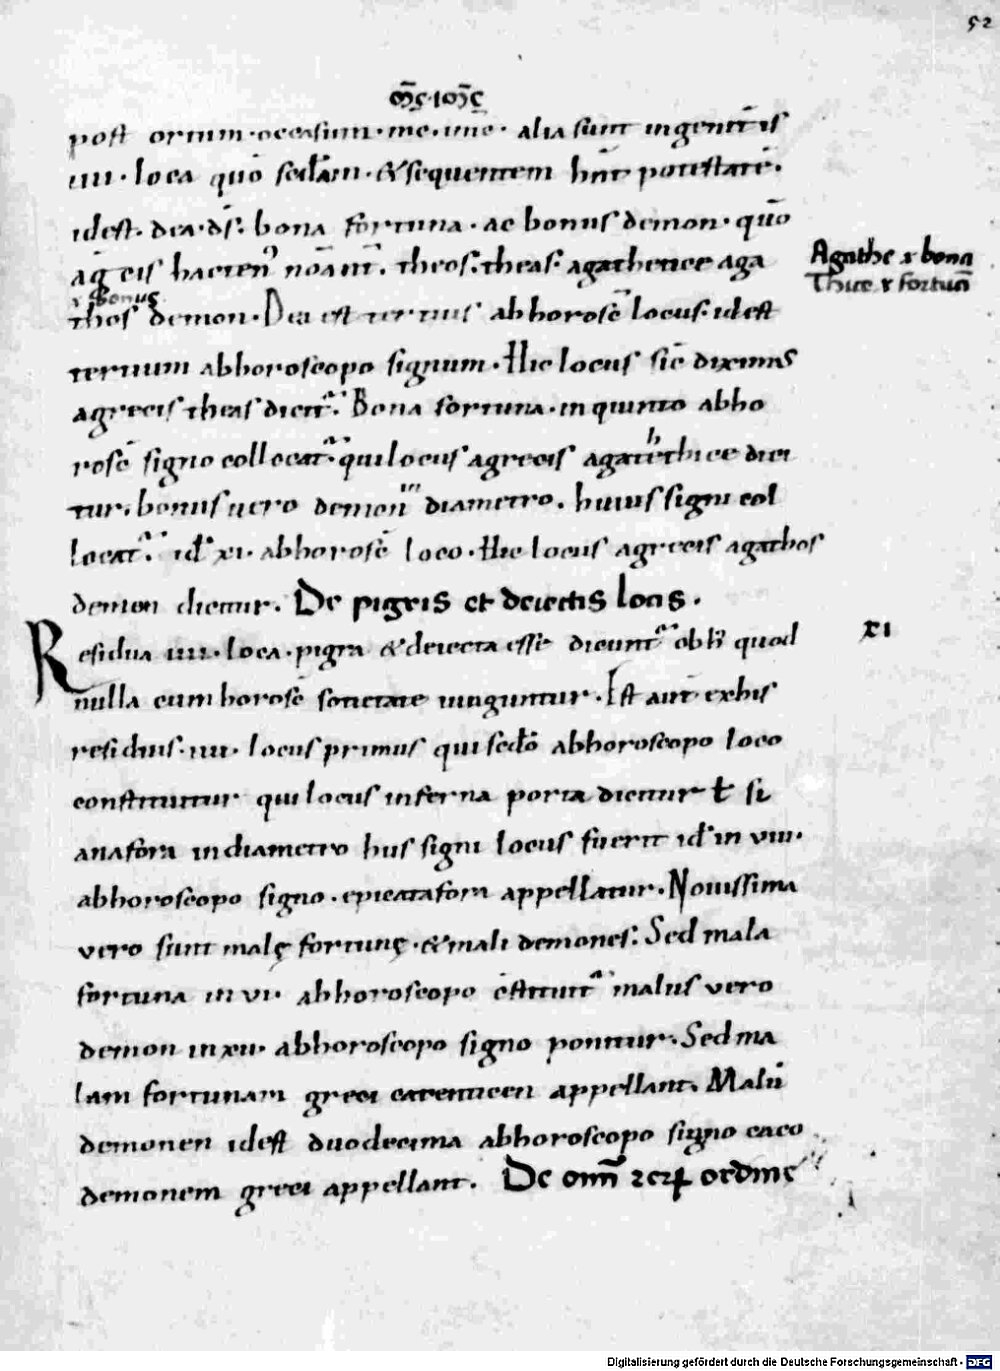 52
post ortum · occasum · mc · imc̄ · alia sunt ingenit̄ıs
iiii · loca quō sed̄am · & sequentem hn̄t potestatē ·
idest · dea · ds̄ · bona fortuna · ac bonus demon · quō
a grecis hacten᷒ noānt̄ · theos · theas · agathetice aga
Agathe ł bona
Thice ł fortuā
ł Bonus
thos demon · Dea est tertius abhorosc̄ locus · idest
tertium abhoroscopo signum · Hic locus sic̄ diximus
agrecis theas dicit᷑ · Bona fortuna · in quinto abho
rosc̄ signo collocat᷑ · qui locus agrecis agatethice dici
tur · bonus vero demon in diametro · huius signi col
locat᷑ · id ̄ xi · abhorosc̄ loco · Hic locus agrecis agathos
demon dicitur · De pigris et deiectis locis ·
Residua iiii · loca · pigra & deiecta esse dicunt᷑ ob h̄ quod
XI
nulla cum horosc̄ societate iunguntur · Est aut̄ exhis
residuis · iiii · locus primus qui sed̄o abhoroscopo loco
constituitur qui locus inferna porta dicitur ł si
anafora indiametro hus signi locus fuerit id ̄ in viii ·
abhoroscopo signo · epicatafora appellatur · Nouissima
vero sunt malę fortunę · & mali demones · Sed mala
fortuna in vi · abhoroscopo c̄stituit᷑ malus vero
demon in xii · abhoroscopo signo ponitur · Sed ma
lam fortunam greci cacenticen appellant · Malū
demonen idest duodecima abhoroscopo signo caco
demonem greci appellant · De omn̄ ꝛeꝝ ordine
Digitalisierung gefördert durch die Deutsche Forschungsgemeinschaft · DFG